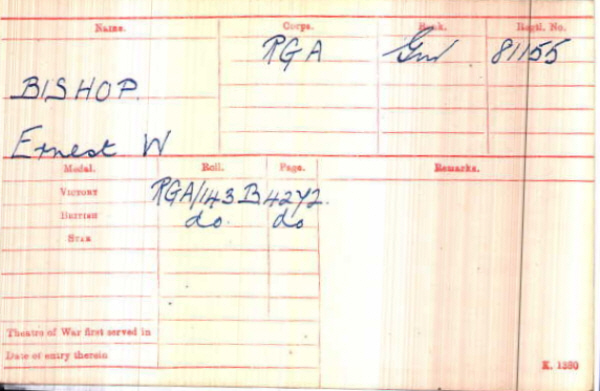 Name. Corps. Rank. Regtl. No.
RGA Gnr 81155
BISHOP.
Ernest W
Medal. Roll. Page. Remarks.
VICTORY RGA/143B 4272.
BRITISH do. do
STAR
Theatre of War first served in
Date of entry therein
K. 1380